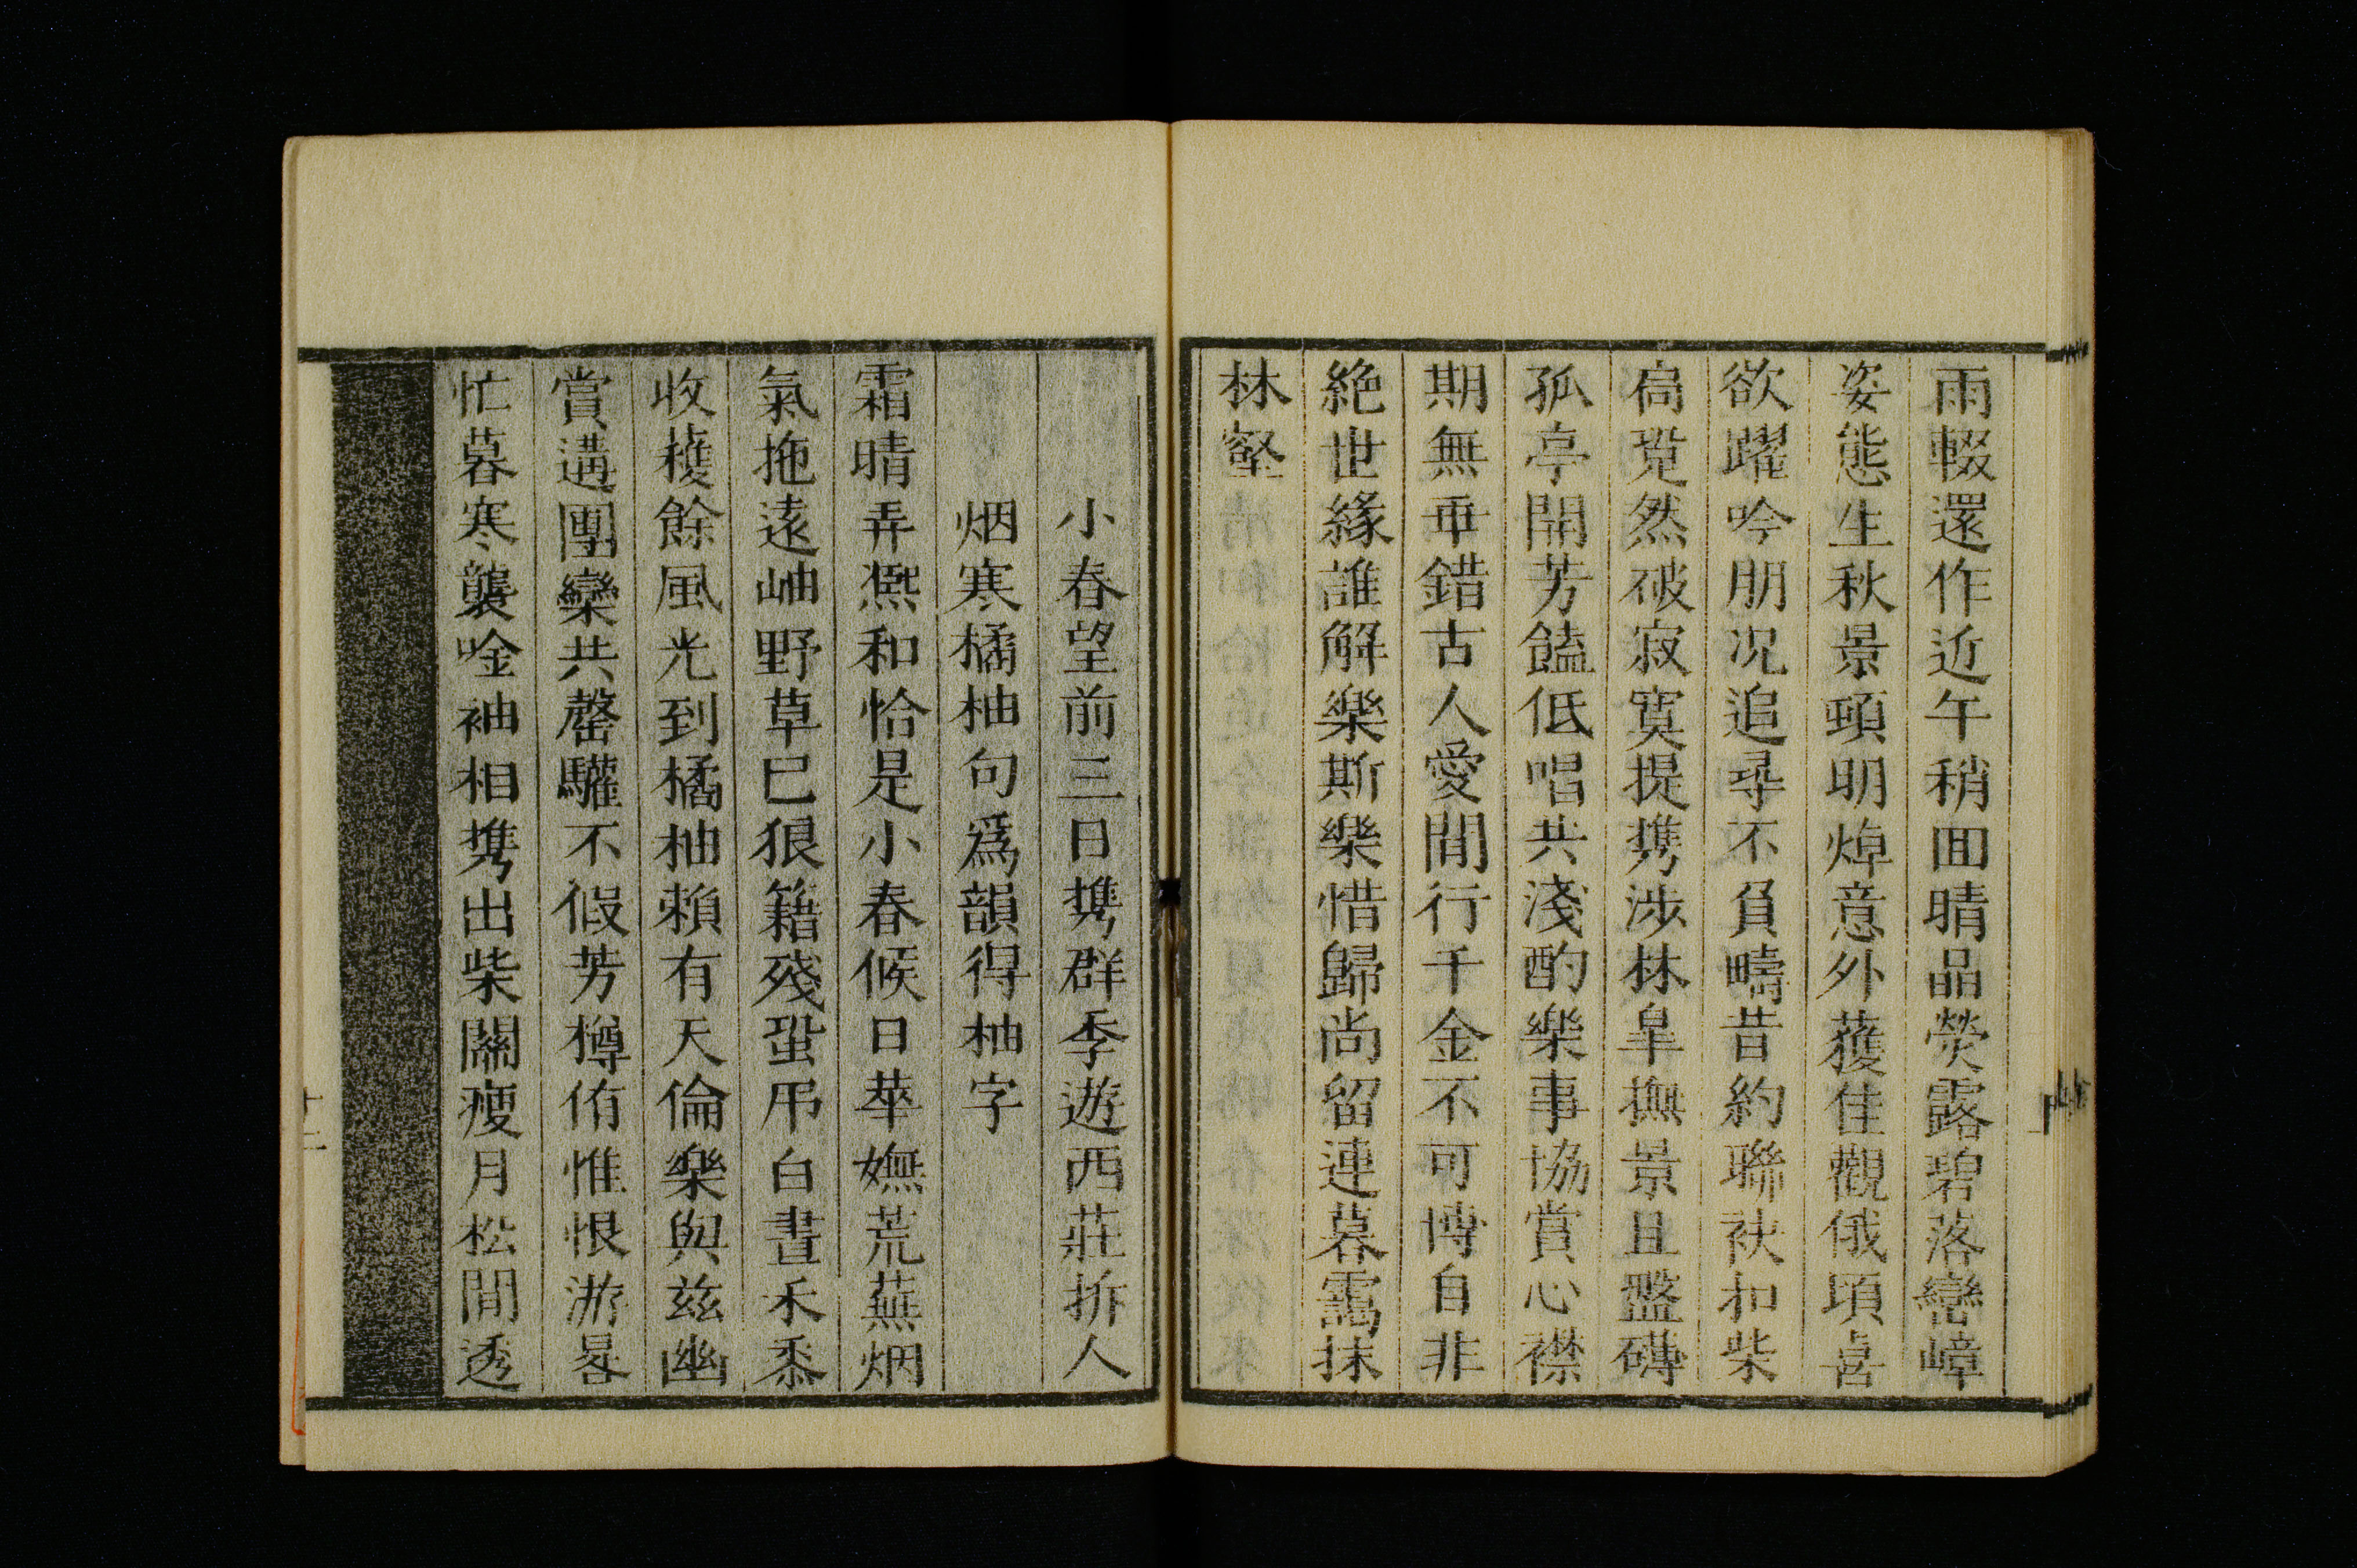 雨輟還作近午稍囬晴晶熒露碧落巒嶂
姿態生秋景頓明焯意外獲佳觀俄頃喜
欲躍吟朋况追尋不負疇昔約聯袂扣柴
扃跫然破寂寞提携涉林皐撫景且盤礴
孤亭開芳饁低唱共淺酌樂事協賞心襟
期無乖錯古人愛閒行千金不可博自非
絶世緣誰解樂斯樂惜歸尚留連暮靄抹
林壑
小春望前三日携群季遊西莊拆人
烟寒橘柚句爲韻得柚字
霜晴弄凞和恰是小春候日華嫵荒蕪烟
氣拖遠岫野草已狼籍殘蛩吊白晝禾黍
收穫餘風光到橘柚賴有天倫樂與茲幽
賞遘團欒共罄驩不假芳樽侑惟恨游晷
忙暮寒襲唫袖相携出柴關瘦月松間透
十二